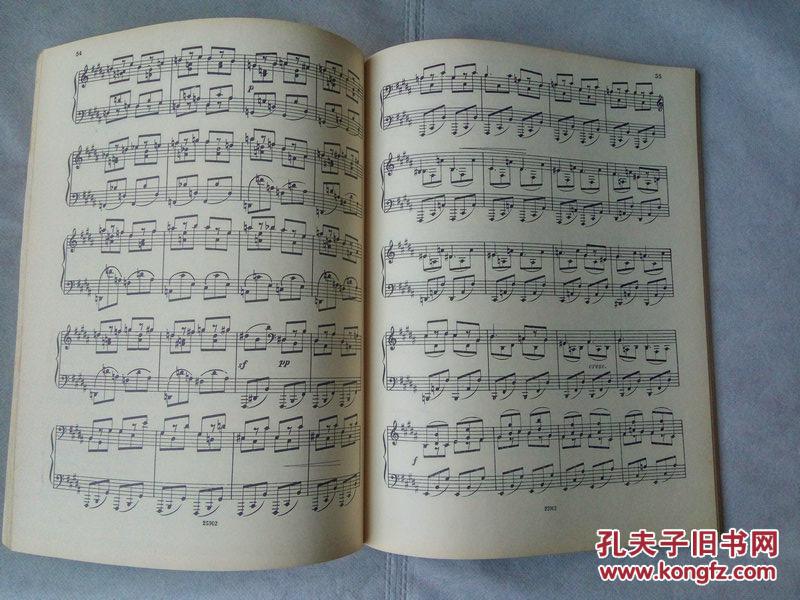 54
p
sf
pp
25902
55
cresc.
f
孔夫子旧书网
www.kongfz.com